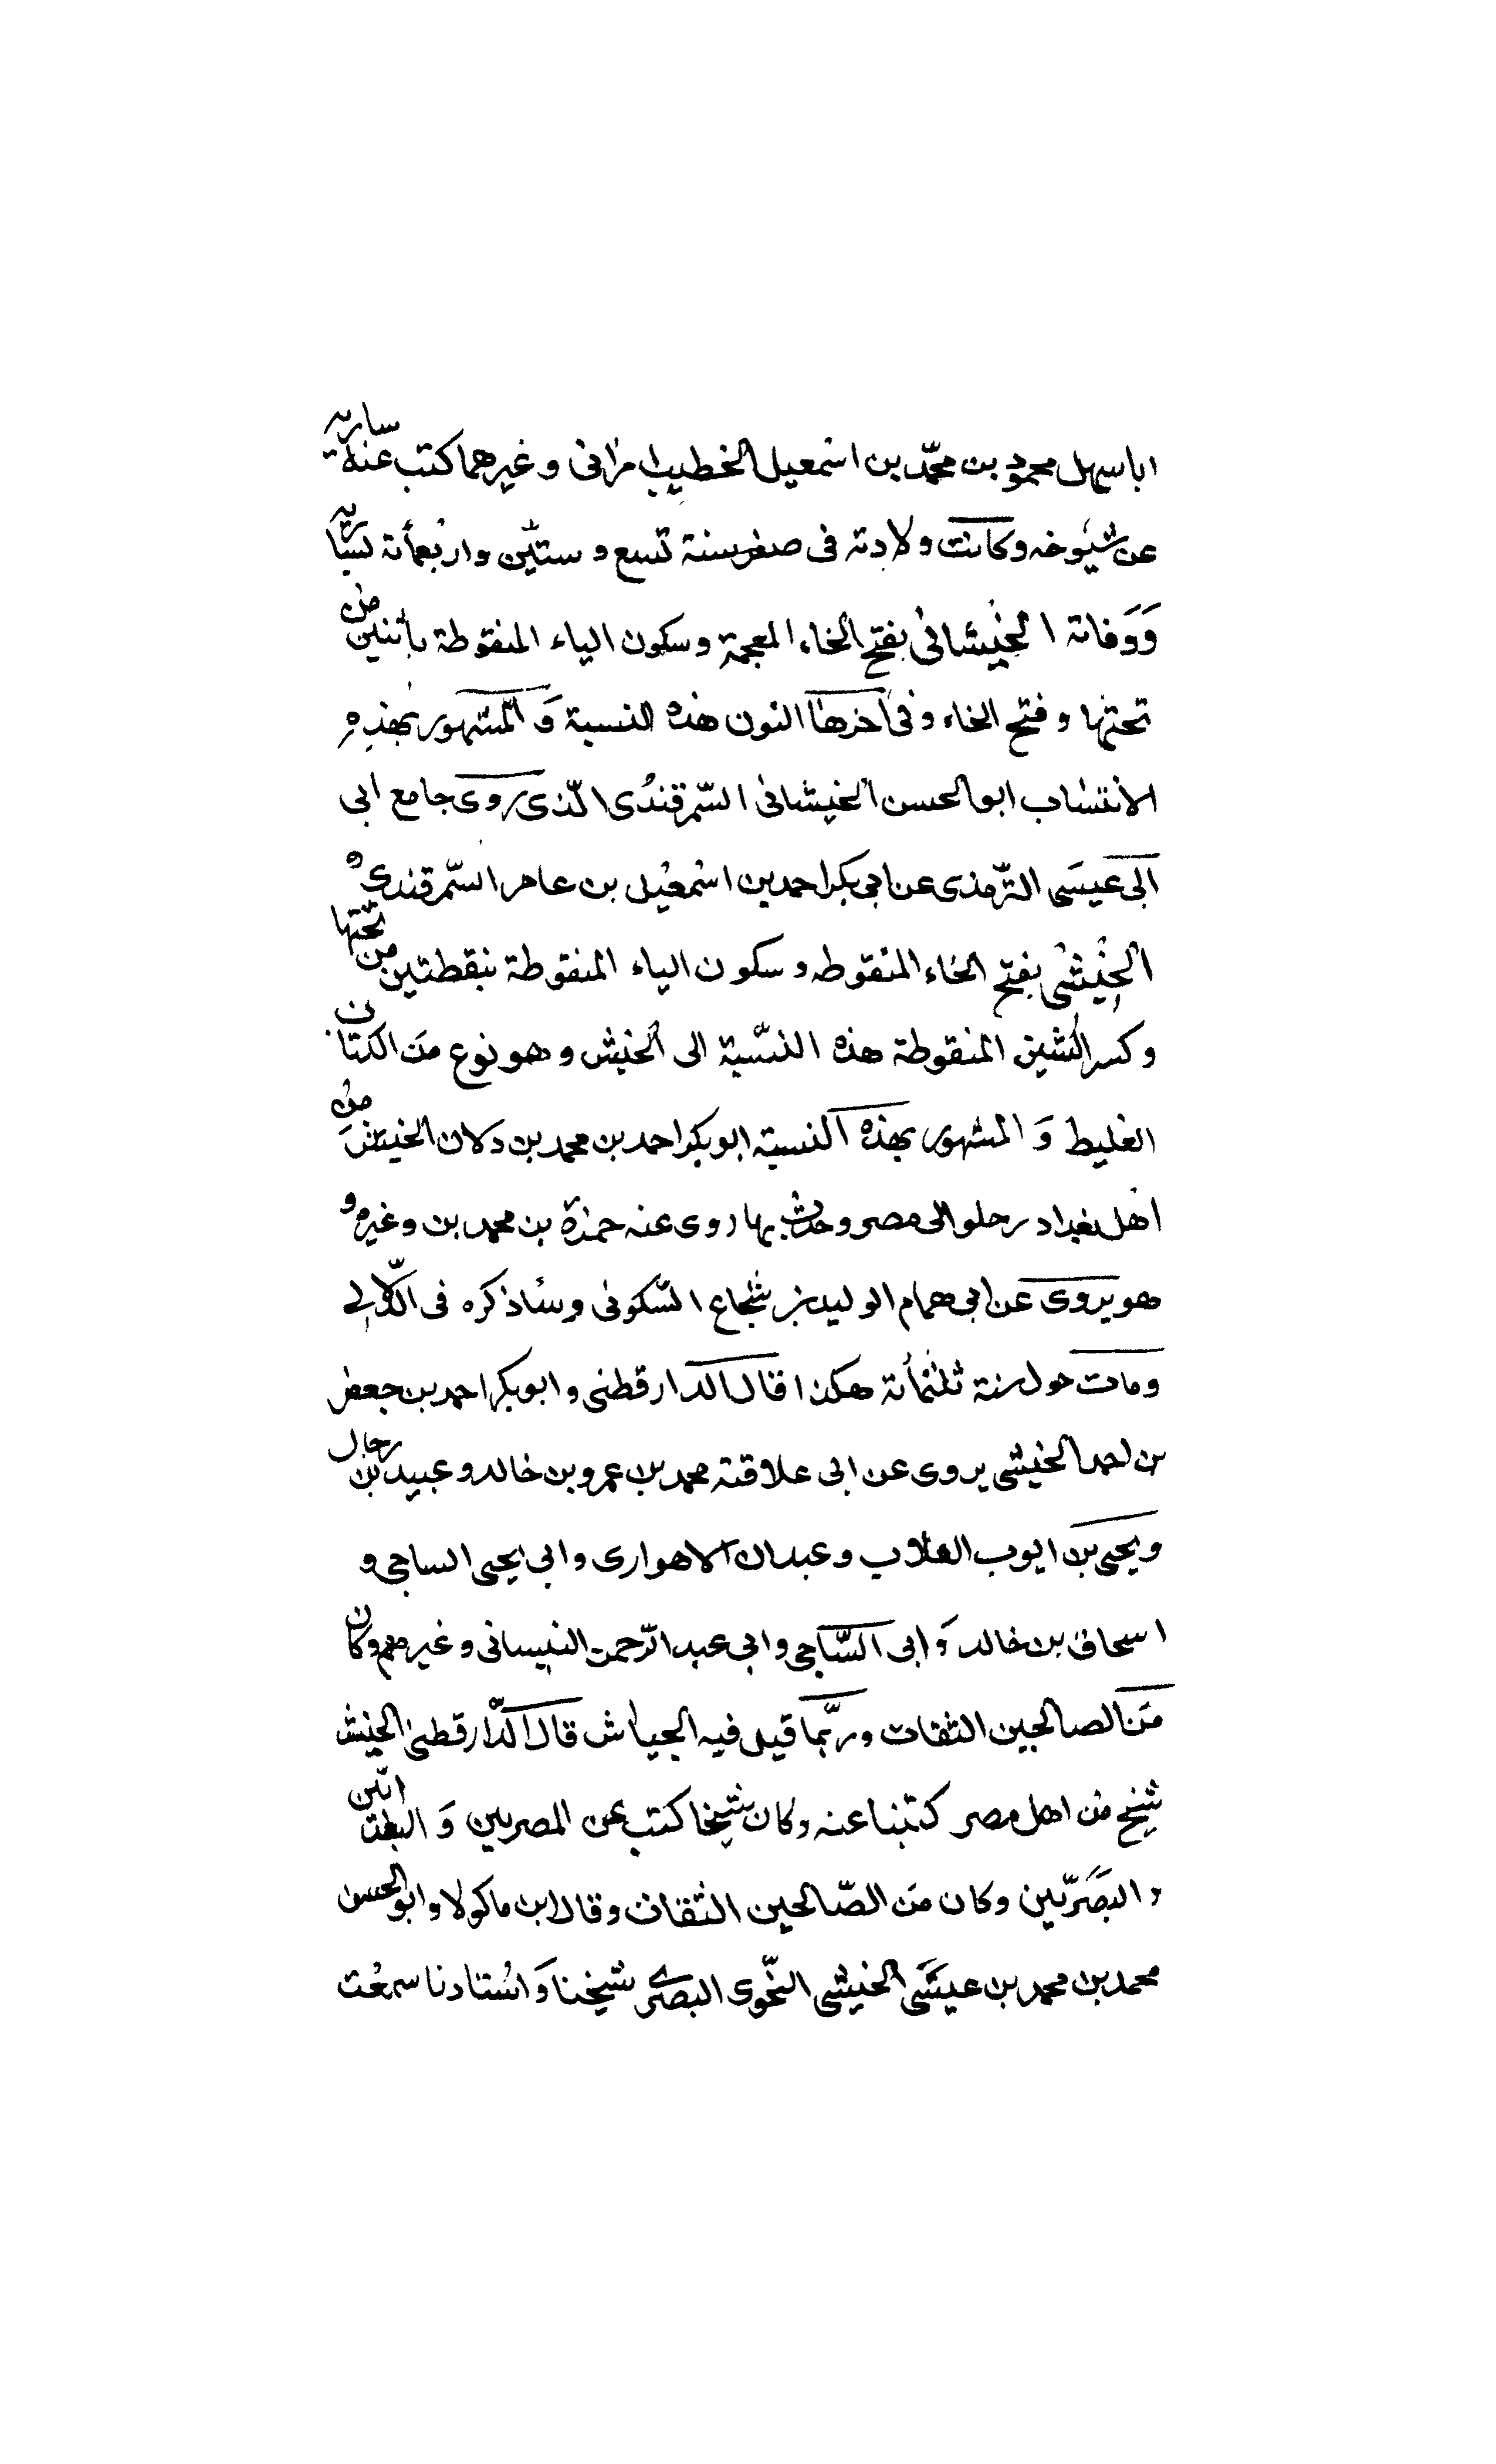 ابا سهل محمود بن محمّد بن اسمعيل الخطيب امرانى و غيرهما كتب عنه بسارية
عن شيوخه و كانت ولادته فى صفر سنة تسع و ستّين و اربعمأئة بسارية
وَوَفاته الخيشانى بفتح الخاء المعجمة و سكون الياء المنقوطة باثنين من
تحتها و فتح الخاء و فى آخرها النون هذه النسبة وَ المشهور بهذه
الانتساب ابو الحسن الخيشانى السّمرقندى الّذى روى جامع ابى
ابى عيسَى التّرمذى عن ابى بكر احمد بن اسمعيل بن عامر السّمرقندى ه
الخيشى بفتح الخاء المنقوطه و سكون الياء المنقوطة بنقطتين من تحتها
و كسر الشين المنقوطة هذه النسّبة الى الخيش و هو نوع منَ الكتان
الغليظ وَ المشهور بهذه النسبة ابو بكر احمد بن محمد بن دلان الخيشى من
اهل بغداد رحلو الى مصر و حدث بها روى عنه حمزة بن محمد بن و غيره و
هو يروى عن ابى همام الوليد بن شجاع السّكونى و سأذكره فى الدّلالى
و مات حول سنة ثلثمأئة هكذا قال الدارقطنى و ابو بكر احمد بن جعفر
بن احمد الخيشى يروى عن ابى علاقة محمد بن عمرو بن خالد و عبيد بن رحال
و يحيى بن ايوب العلاب و عبدان الاهوارى و ابى يحيى الساجى و
اسحاق بن خالد وَ ابى السّاجى و ابى عبد الرّحمن النيسانى و غيرهم و كان
منَ الصالحين الثقات و ربّما قيل فيه الجياش قال الدّارقطنىٰ الخيش
شيخ من اهل مصر كتبنا عنه و كان شيخا كتب عن المصريين وَ البغداتّين
و البصَريّين و كان منَ الصّالحين الثقات و قال ابن ماكولا و ابو الحسن
محمد بن محمد بن عيسَى الخيشى النّحوى البصرى شيخنا وَ استادنا سمعت